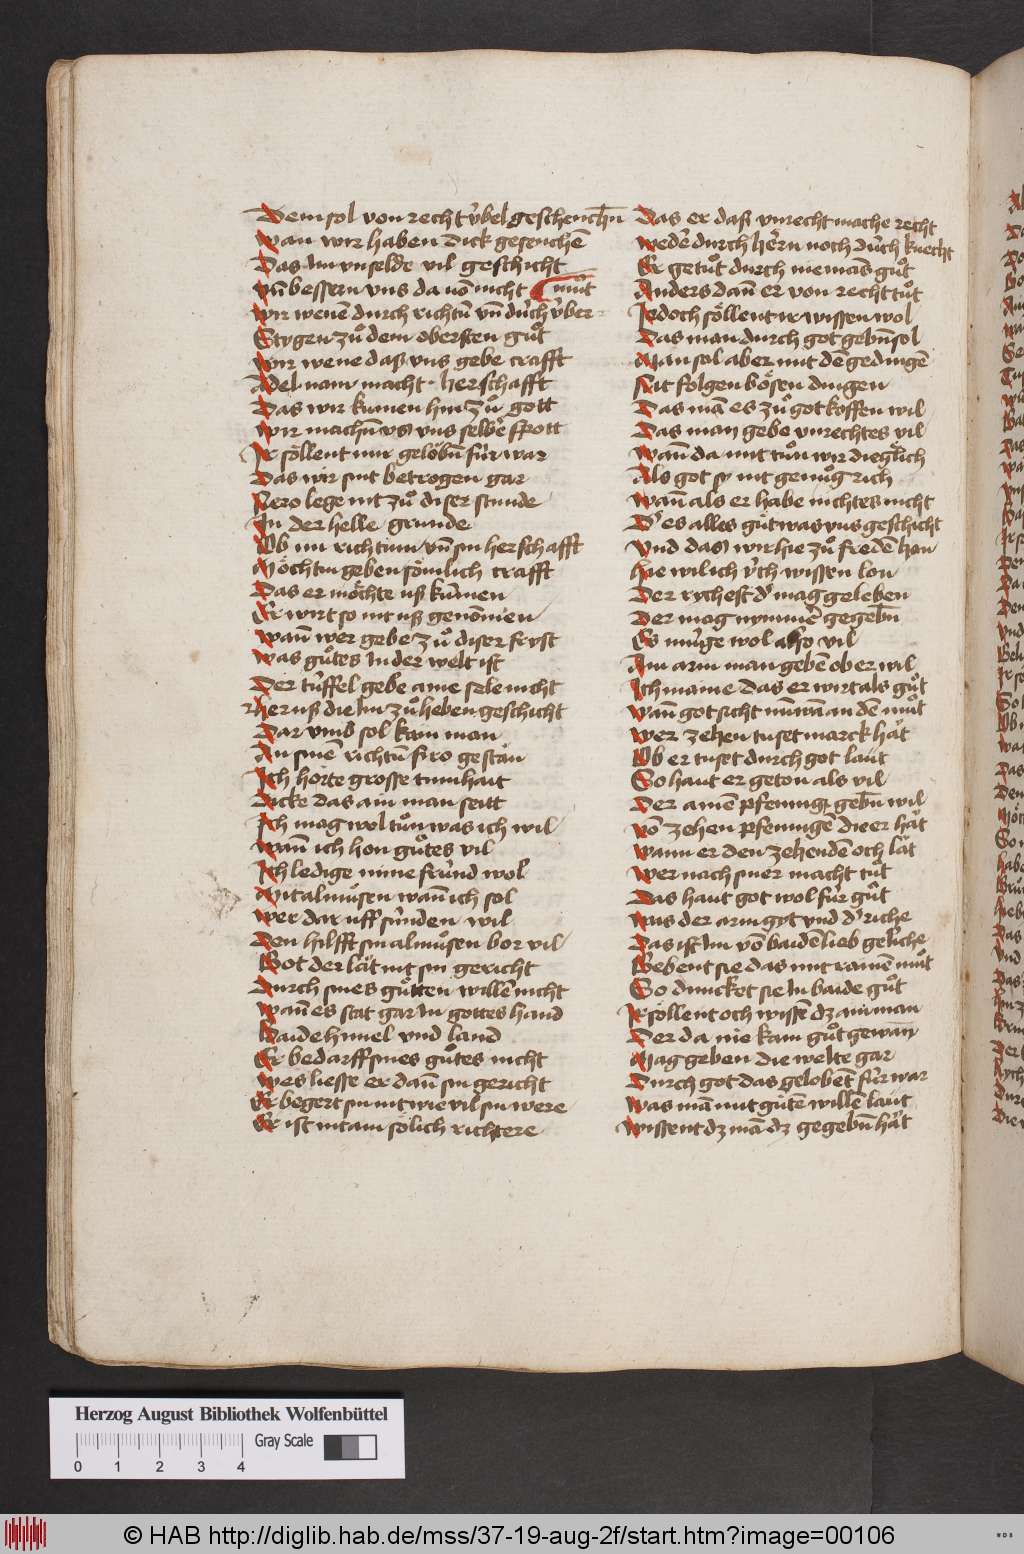 Dem sol von recht v̇bel geschenchn̄
wan wir haben dick gesenchē
Das Im vnselde vil geschicht
vn̄ bessern vns da vō nicht
mu̇t
wir wenē durch richtu̅ vn̄ du̇ch v̇ber-
Stygen zů dem obersten gůt
wir wene das vns gebe crafft
Adel nam macht herschafft
Das wir kumen hin zů gott
wir machn̄ vs vns selbē spott
Ir söllent mir gelobn̄ fu̇r war
Das wir sint betrogen gar
Nero lege nit zů diser stunde
In der helle grunde
Ob im richtum vn̄ sin herschafft
Möchtin geben sömlich crafft
Das er möchte uß ku̇men
Er wirt so nit uß genōmen
wan̄ wer gebe zů diser fryst
was gůtes In der welt ist
Der tu̇ffel gebe aine sele nicht
her uß die Im zů heben geschicht
Dar vmb sol kain man
An sinē richtu̅ firo gestän
Ich horte grosse tumhait
Dicke das ain man seitt
Ich mag wol tůn was ich wil
wan̄ ich hon gůtes vil
Ich ledige mine fru̇nd wol
Mit almůsen wan̄ ich sol
wer dar uff su̇nden wil
Den hilfft sin almůsen bor vil
Got der lät nit sin gericht
Durch sines gůtten willē nicht
wan̄ es stat gar In gottes hand
Baide himel vnd land
Er bedarff sines gůtes nicht
wes liesse er dan̄ sin gericht
Er begert sin nit wie vil sin were
Er ist nit ain sölich richtere
Das er daß vnrecht mache recht
wedē durch hērn noch du̇ch knecht
Er getůt durch niemās gůt
Anders dan̄ er von recht tůt
Jedoch söllent ir wissen wol
Das man durch got gebn̄ sol
Man sol aber mit dē gedingē
Nit folgen bösen dingen
Das mā es zů got koffen wil
Das man gebe vnrechtes vil
wan̄ da mit tůn wir dieglich
Als got sy nit genůg rich
wan̄ als er habe nichtes nicht
D' es alles gůt was vns geschicht
Vnd das wir hie zů fredē hon
hie wil ich v̇ch wissen lon
Der rychest d' mag geleben
Der mag nymmē gegebn̄
Es mu̇ge wol also vil
Ain arm man gebē ob er wil
Ich maine das er wirt als gůt
wan̄ got sicht nu̅wā an dē můt
wer zehen tuset marck hät
Ob er tuset durch got laut
So haut er geton als vil
Der ainē pfennig gebn̄ wil
vō zehen pfennigē die er hät
wann er den zehendē och lät
wer nach siner macht tůt
Das haut got wol fu̇r gůt
was der arm gyt vnd d' riche
Das ist Im vō baidē lieb geliche
Gebent sie das mit rainē můt
So duncket sie In baide gůt
Ir söllent och wissē dz ain man
Der da nie kain gůt gewan̄
Mag geben die welte gar
Durch got das gelobēt fu̇r war
was mā mit gůtē willē laut
wissent dz mā dz gegebn̄ hät
Herzog August Bibliothek Wolfenbüttel
Gray Scale
0 1 2 3 4
© HAB http://diglib.hab.de/mss/37-19-aug-2f/start.htm?image=00106